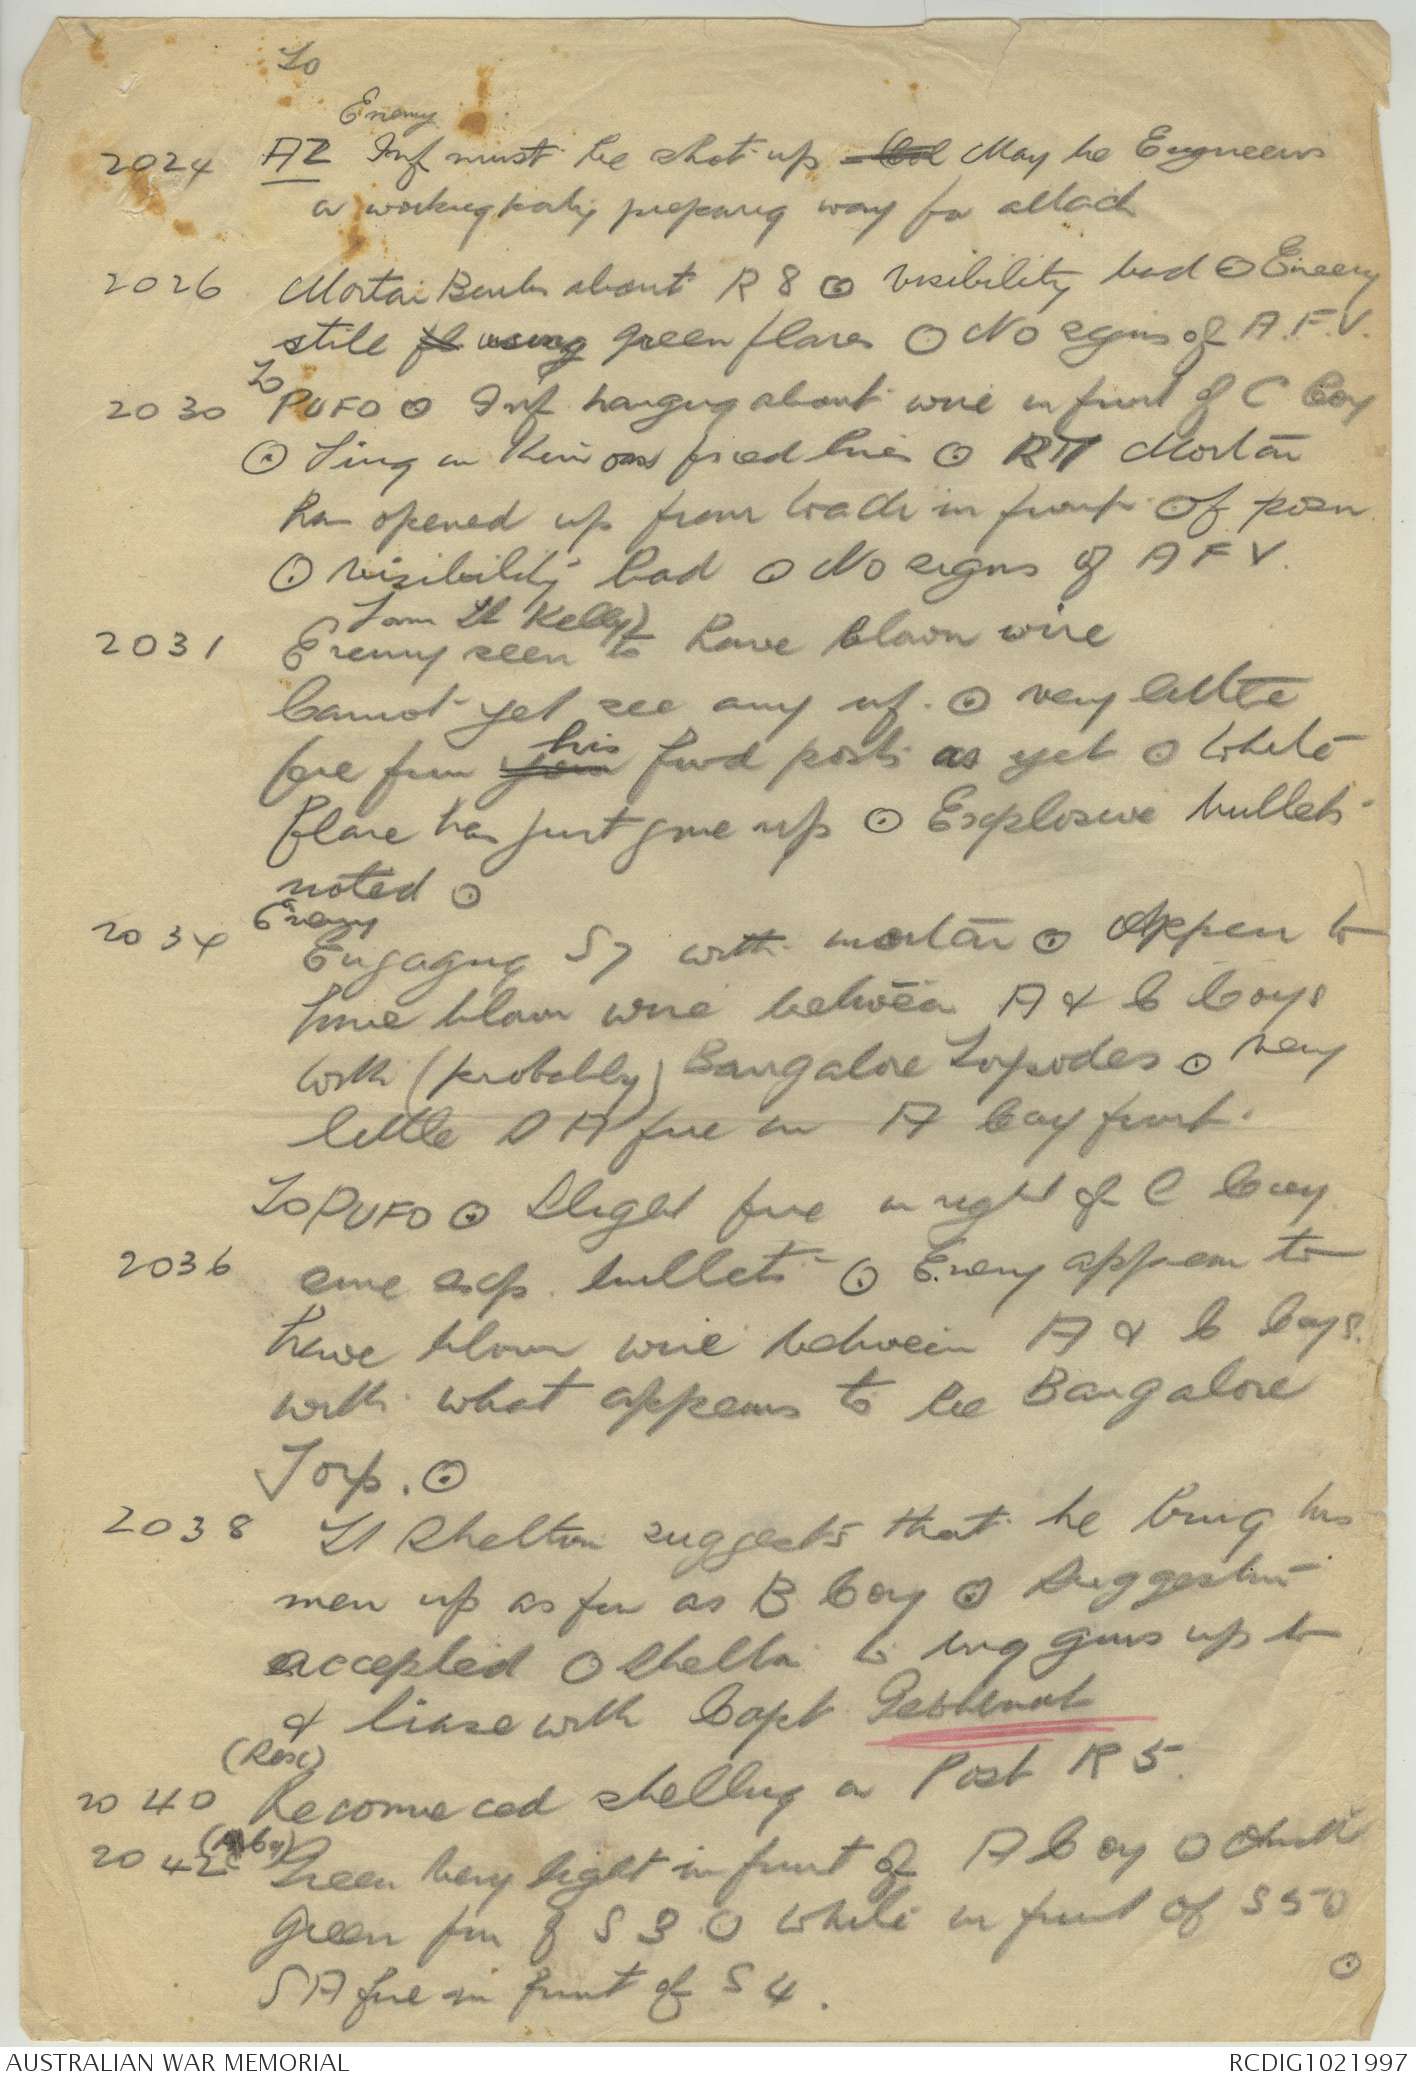 To
Enemy
2024 AZ Inf must be shot up May be Engineers
or working party preparing way for attack
2026 Mortar Bombs about R8 ⊙ Visibility bad ⊙ Enemy
still using green flares ⊙ No signs of A.F.V.
To
2030 PUFO ⊙ Inf hanging about wire in front of C Coy
⊙ Firing on their fixed lines ⊙ R7 Mortar
has opened up from in front of posn
⊙ Visibility bad ⊙ No signs of A F V.
From Lt Kelly)
2031 Enemy seen to have blown wire
Cannot yet see any inf. ⊙ very little
his
fire from your fwd posts as yet ⊙ White
flare has just gone up ⊙ Explosive bullets
noted ⊙
Enemy
2034 Engaging S7 with mortar ⊙ Appear to
have blown wire between A & C Coys
with (probably) Bangalore Torpedoes ⊙ very
little S A fire on A Coy front.
To PUFO ⊙ Slight fire on right of C Coy
2036 some exp. bullets ⊙ Enemy appear to
have blown wire between A & C Coys.
with what appears to be Bangalore
Torp. ⊙
2038 Lt Shelton suggests that he bring his
men up as far as B Coy ⊙ Suggestion
accepted ⊙ Shelton to bring guns up to
& liase with Capt
(Rose)
2040 Recommenced shelling on Post R5.
(A Coy)
2042 Green very light in front of A Coy ⊙ Another
green from of S3 ⊙ White in front of S5 ⊙
⊙
SA fire in front of S4.
AUSTRALIAN WAR MEMORIAL
RCDIG1021997